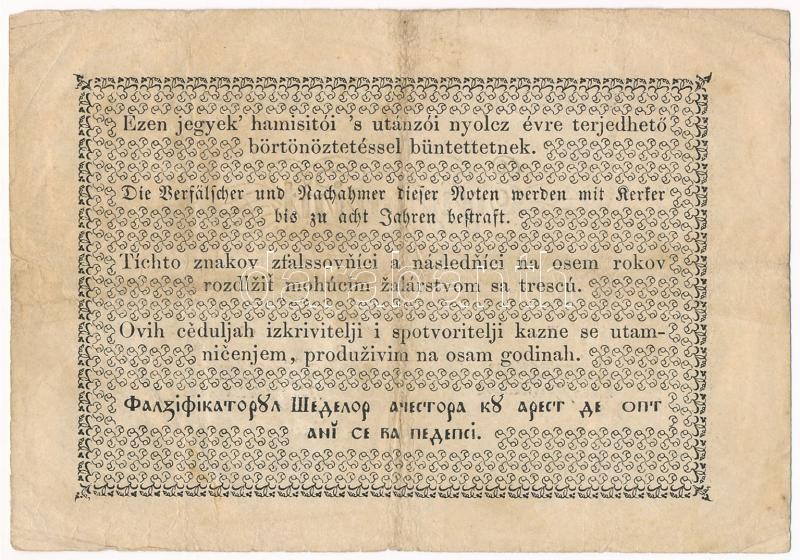 Ezen jegyek’ hamisitói ’s utánzói nyolcz évre terjedhető
börtönöztetéssel büntettetnek.
Die Verfälscher und Nachahmer dieser Noten werden mit Kerker
bis zu acht Jahren bestraft.
Tíchto znakov zfalssovňíci a následňíci na osem rokov
rozdlžiť mohúcim žalárstvom sa trescú.
Ovih cèduljah izkrivitelji i spotvoritelji kazne se utam-
ničenjem, produživim na osam godinah.
Фалꙅіфікаторꙋл Шеделор ачестора кꙋ арест де опт
анĭ се ва педепсі.